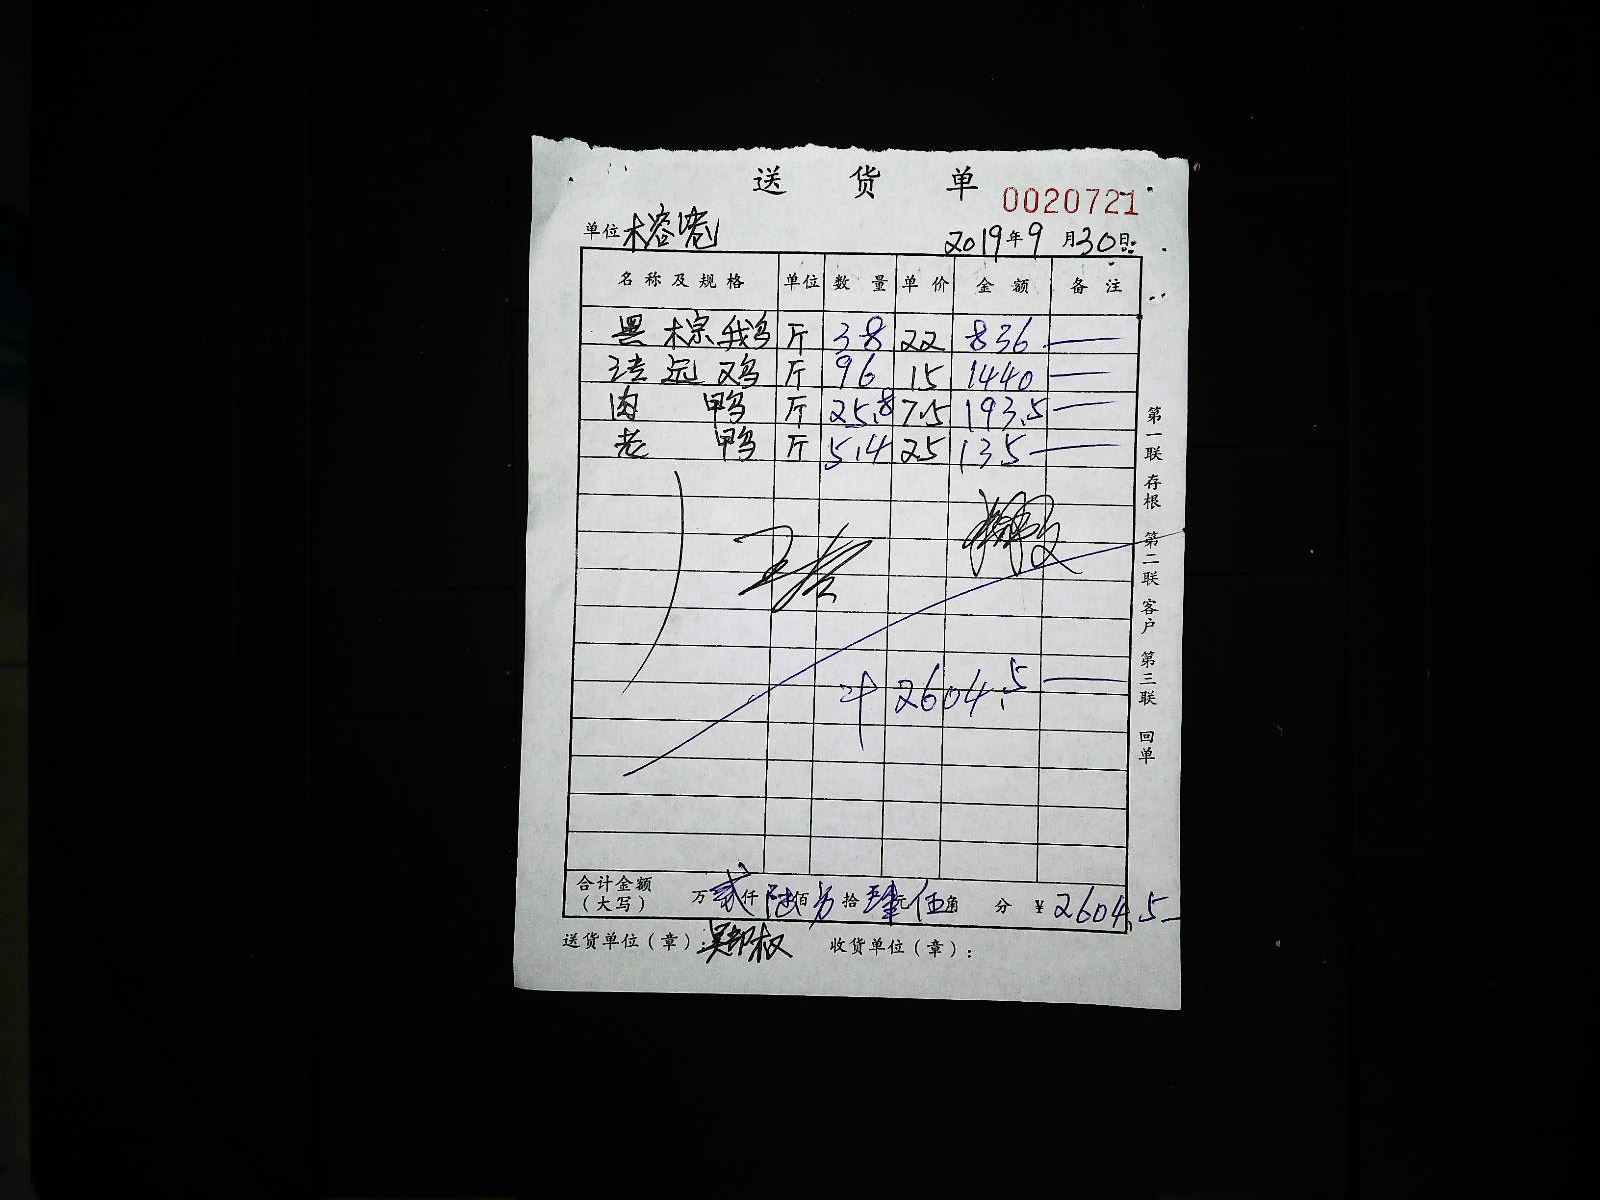 送货单
0020721
单位 木容港 2019年9月30日
名称及规格 单位 数量 单价 金额 备注
黑棕鹅 斤 38 22 836 —
清远鸡 斤 96 15 1440 —
肉鸭 斤 25.8 7.5 193.5 —
老鸭 斤 5.4 25 135 —
计 2604.5 —
合计金额（大写） 万贰仟陆佰另拾肆元伍角 分 ￥2604.5
送货单位（章）： 收货单位（章）：
第一联 存根 第二联 客户 第三联 回单